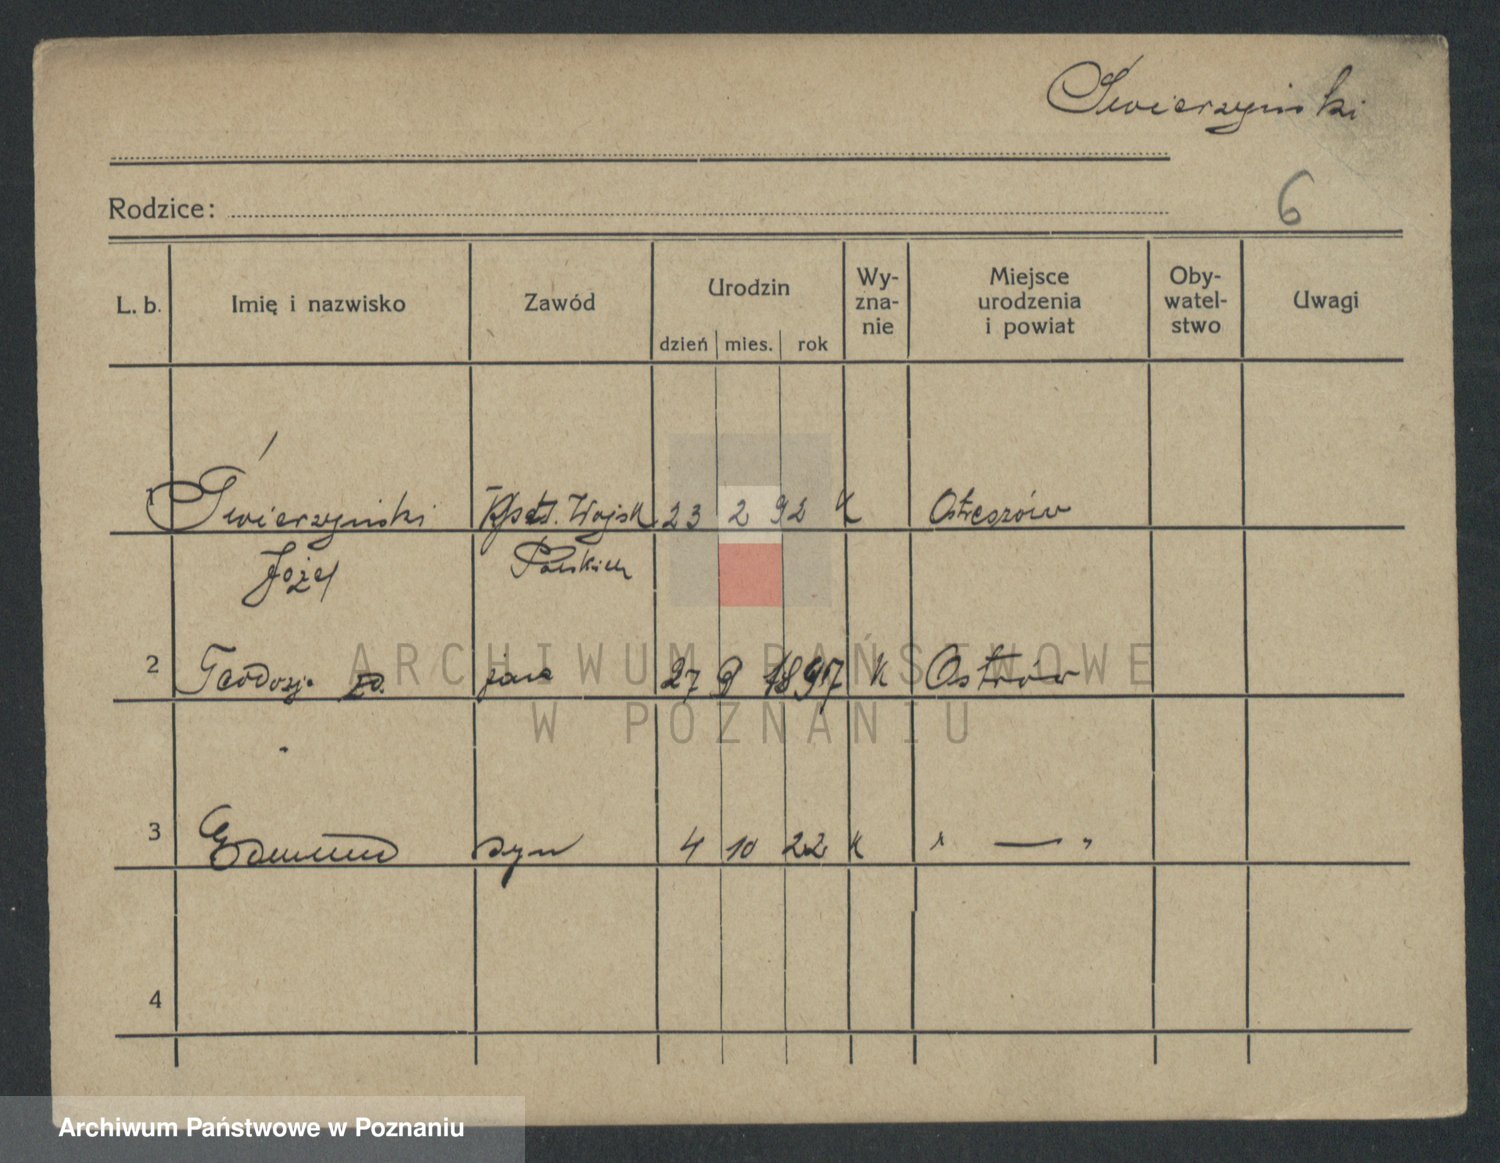 Świerzyński
Rodzice:
6
L. b. Imię i nazwisko Zawód Urodzin dzień mies. rok Wy-zna-nie Miejsce urodzenia i powiat Oby-watel-stwo Uwagi
1 Świerzyński Wojsk 23 2 92 K Ostrzeszów
Józef Polskich
2 Teodozja żona 27 9 1897 K Ostrów
3 Edmund syn 4 10 22 K " — "
4
ARCHIWUM PAŃSTWOWE
W POZNANIU
Archiwum Państwowe w Poznaniu